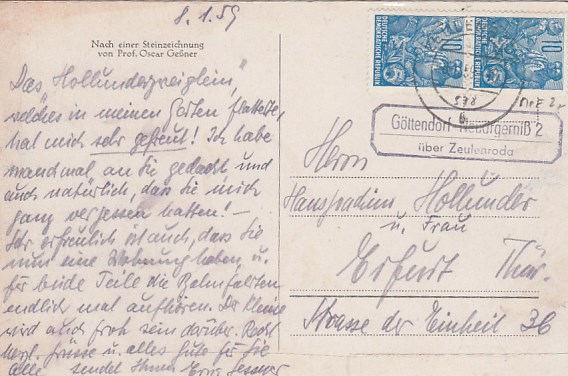 8.1.59
Nach einer Steinzeichnung
von Prof. Oscar Geßner
"Das Hollunderzweiglein",
welches in meinen Garten flatterte,
hat mich sehr gefreut! Ich habe
manchmal an Sie gedacht und
auch natürlich, dass Sie mich
ganz vergessen hatten! –
Sehr erfreulich ist auch, dass Sie
nun eine Wohnung haben u.
für beide Teile die Bahnfahrten
endlich mal aufhören. Der Kleine
wird auch froh sein darüber. Recht
herzl. Grüsse u. alles Gute für Sie
alle sendet Ihnen
DEUTSCHE DEMOKRATISCHE REPUBLIK 10
DEUTSCHE DEMOKRATISCHE REPUBLIK 10
Göttendorf-Neuärgerniß 2
über Zeulenroda
Herrn
Hansjoachim Hollunder
u. Frau
Erfurt Thür.
Strasse der Einheit 36